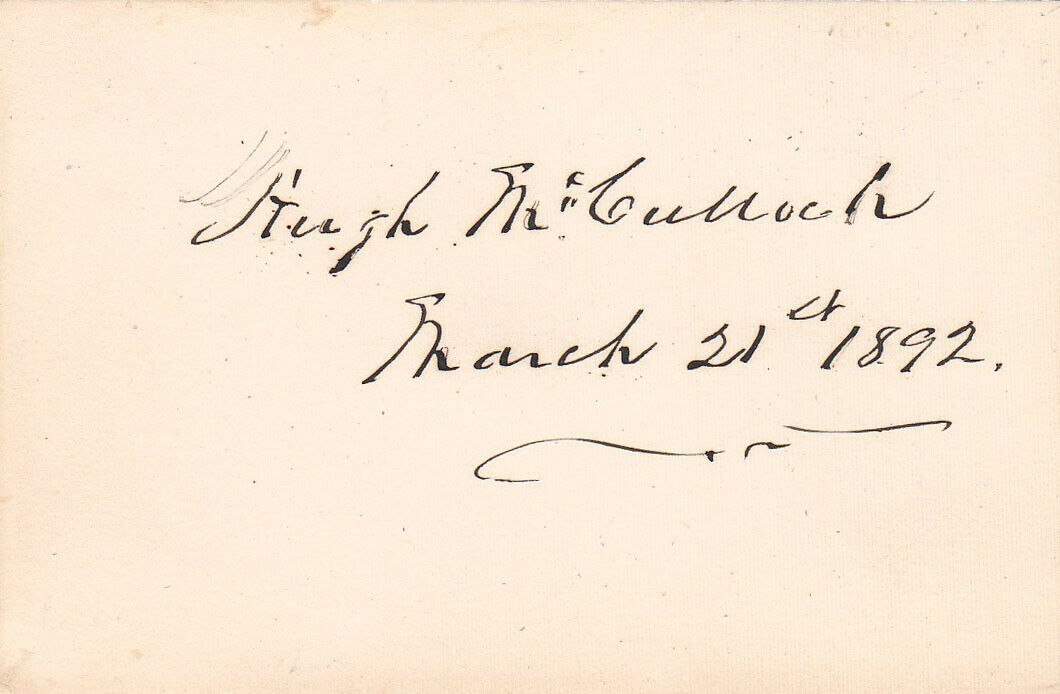 Hugh McCulloch
March 21st 1892.